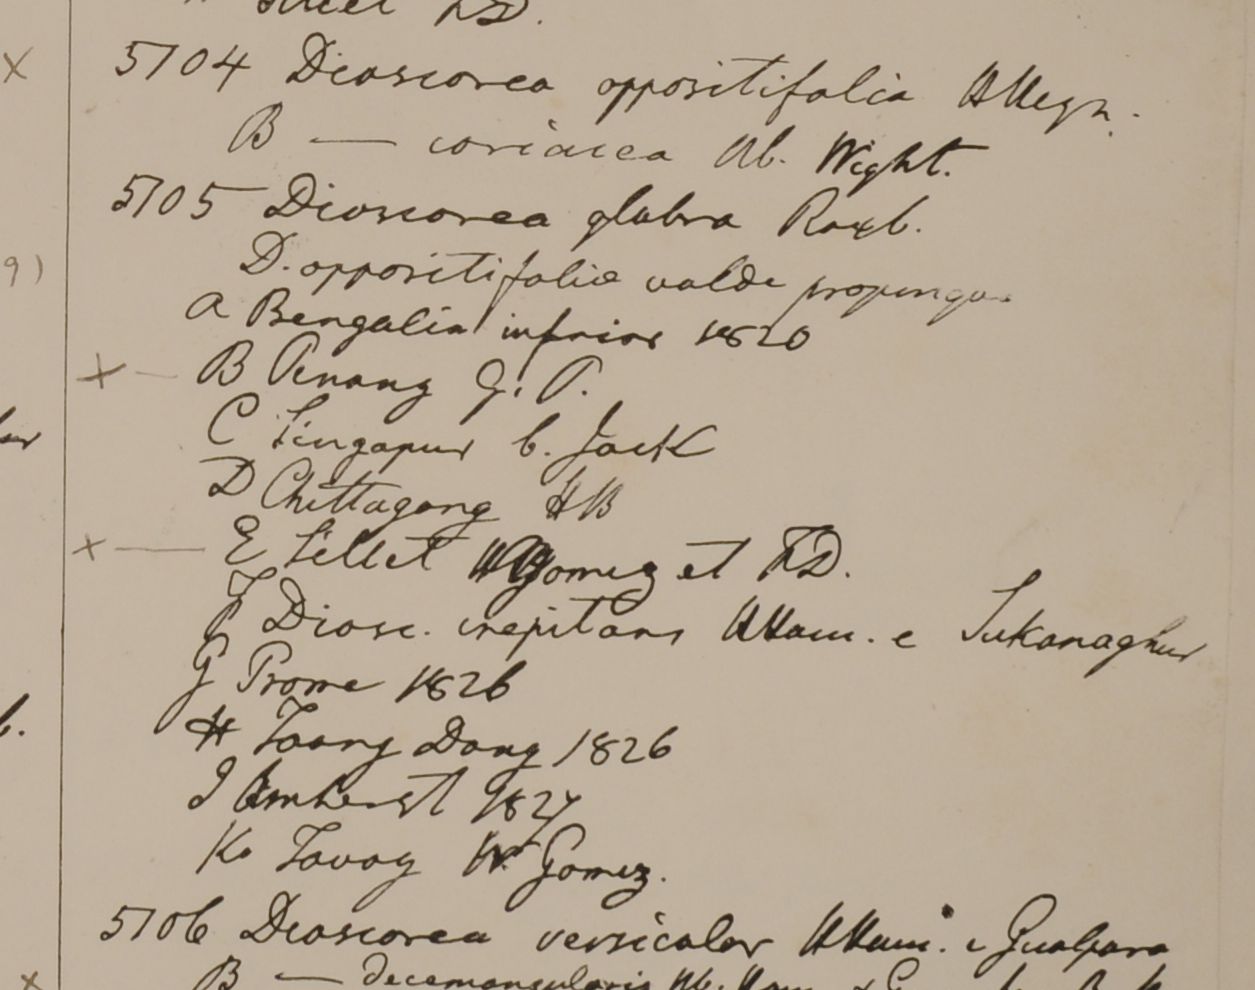 Sillet F.D.
x 5704 Dioscorea oppositifolia H Heyn.
B — coriacea Hb. Wight.
5705 Dioscorea glabra Roxb.
9) D. oppositifoliæ valde propinqua
A Bengalia inferior 1820
x — B Penang G. P.
C Singapur b. Jack
D Chittagong HB
x — E Sillet W Gomez et F.D.
F Diosc. crepitans HHam. e Sukanaghur
G Prome 1826
H Taong Dong 1826
I Amherst 1827
K. Tavoy W. Gomez.
5706 Dioscorea versicolor HHam. e Gualpara
x B — decemangularis Hb. Ham